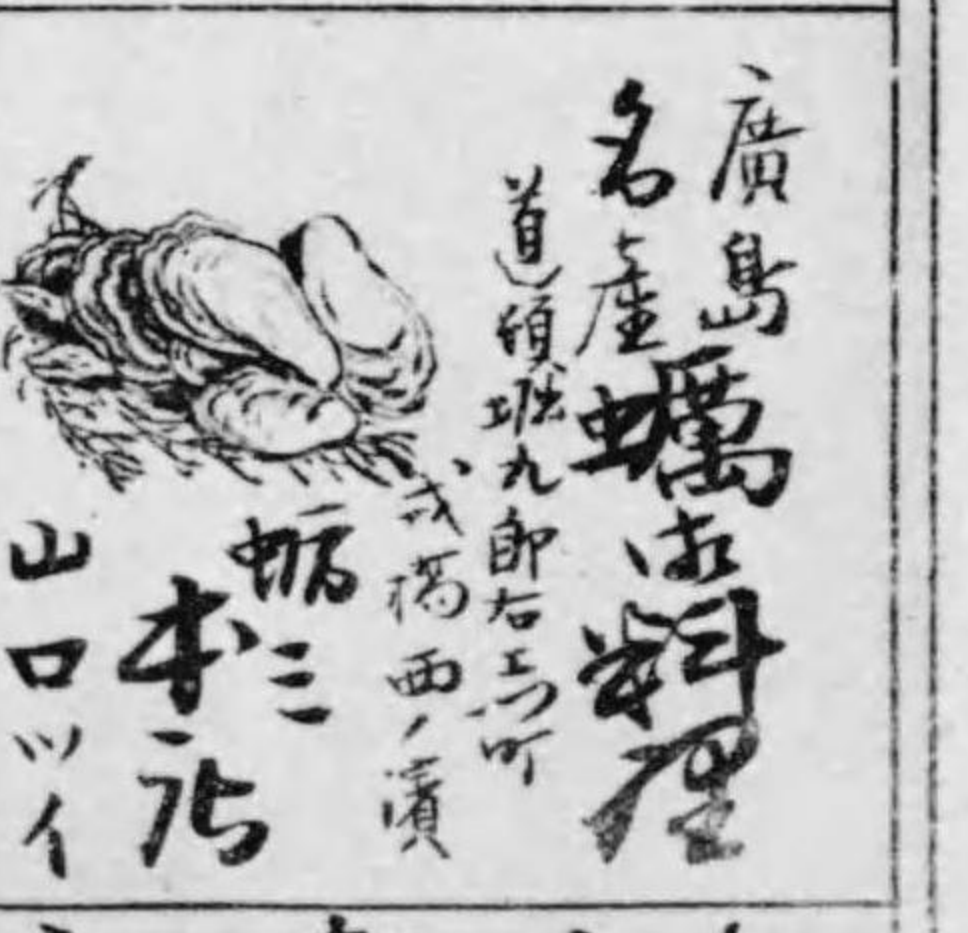 廣島
名産
蠣御料理
道頓堀九郎右エ門町
戎橋西ノ濱
蛎三
本店
山口ツイ